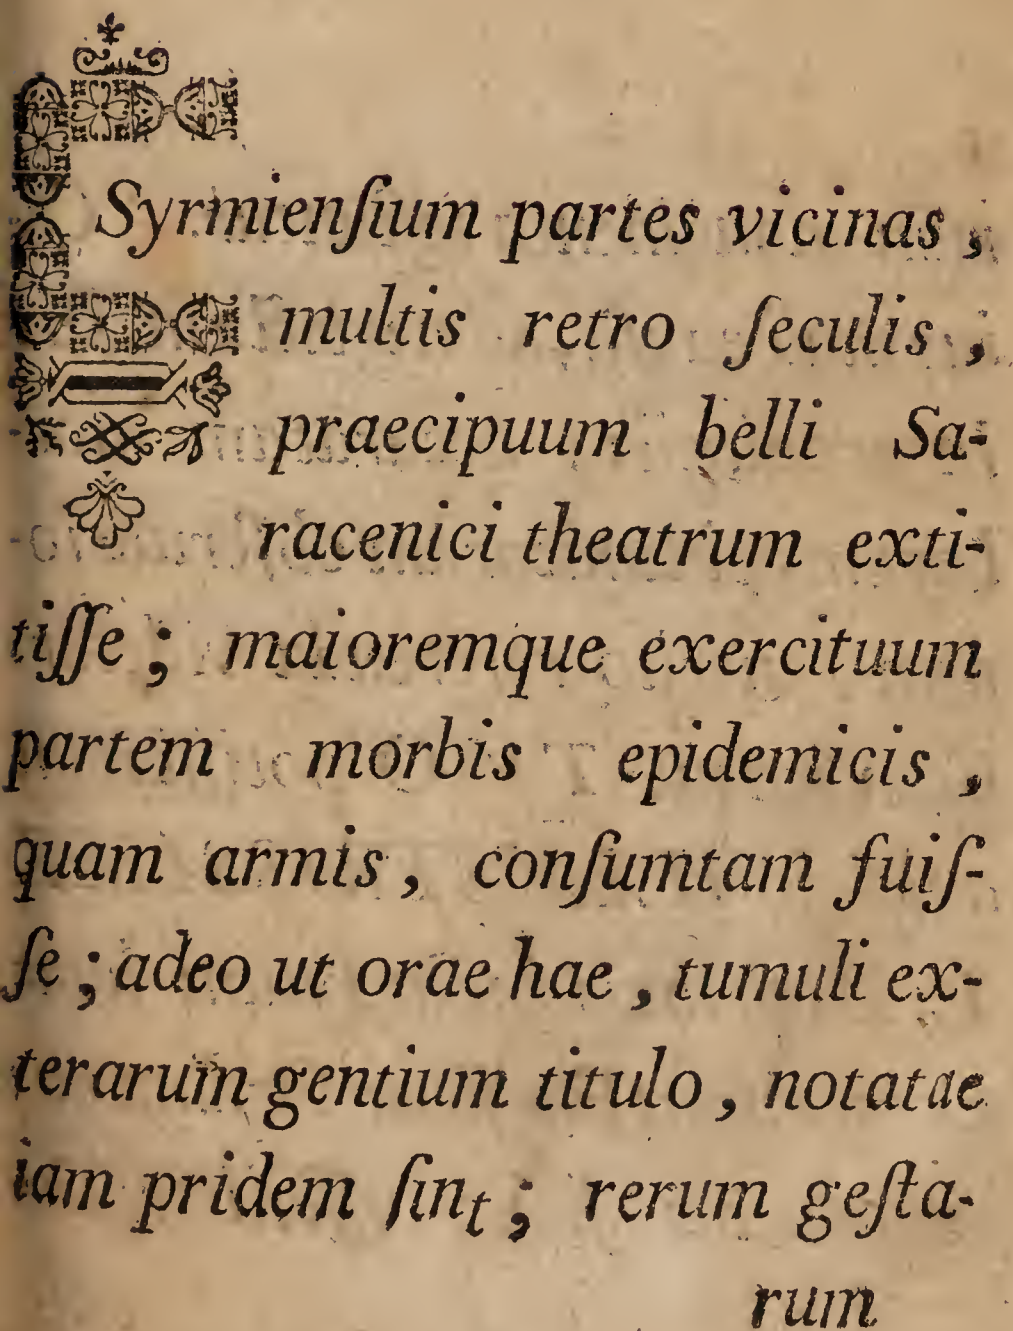 Syrmienſium partes vicinas,
multis retro ſeculis,
praecipuum belli Sa-
racenici theatrum exti-
tiſſe; maioremque exercituum
partem morbis epidemicis,
quam armis, conſumtam fuiſ-
ſe; adeo ut orae hae, tumuli ex-
terarum gentium titulo, notatae
iam pridem ſint; rerum geſta-
rum